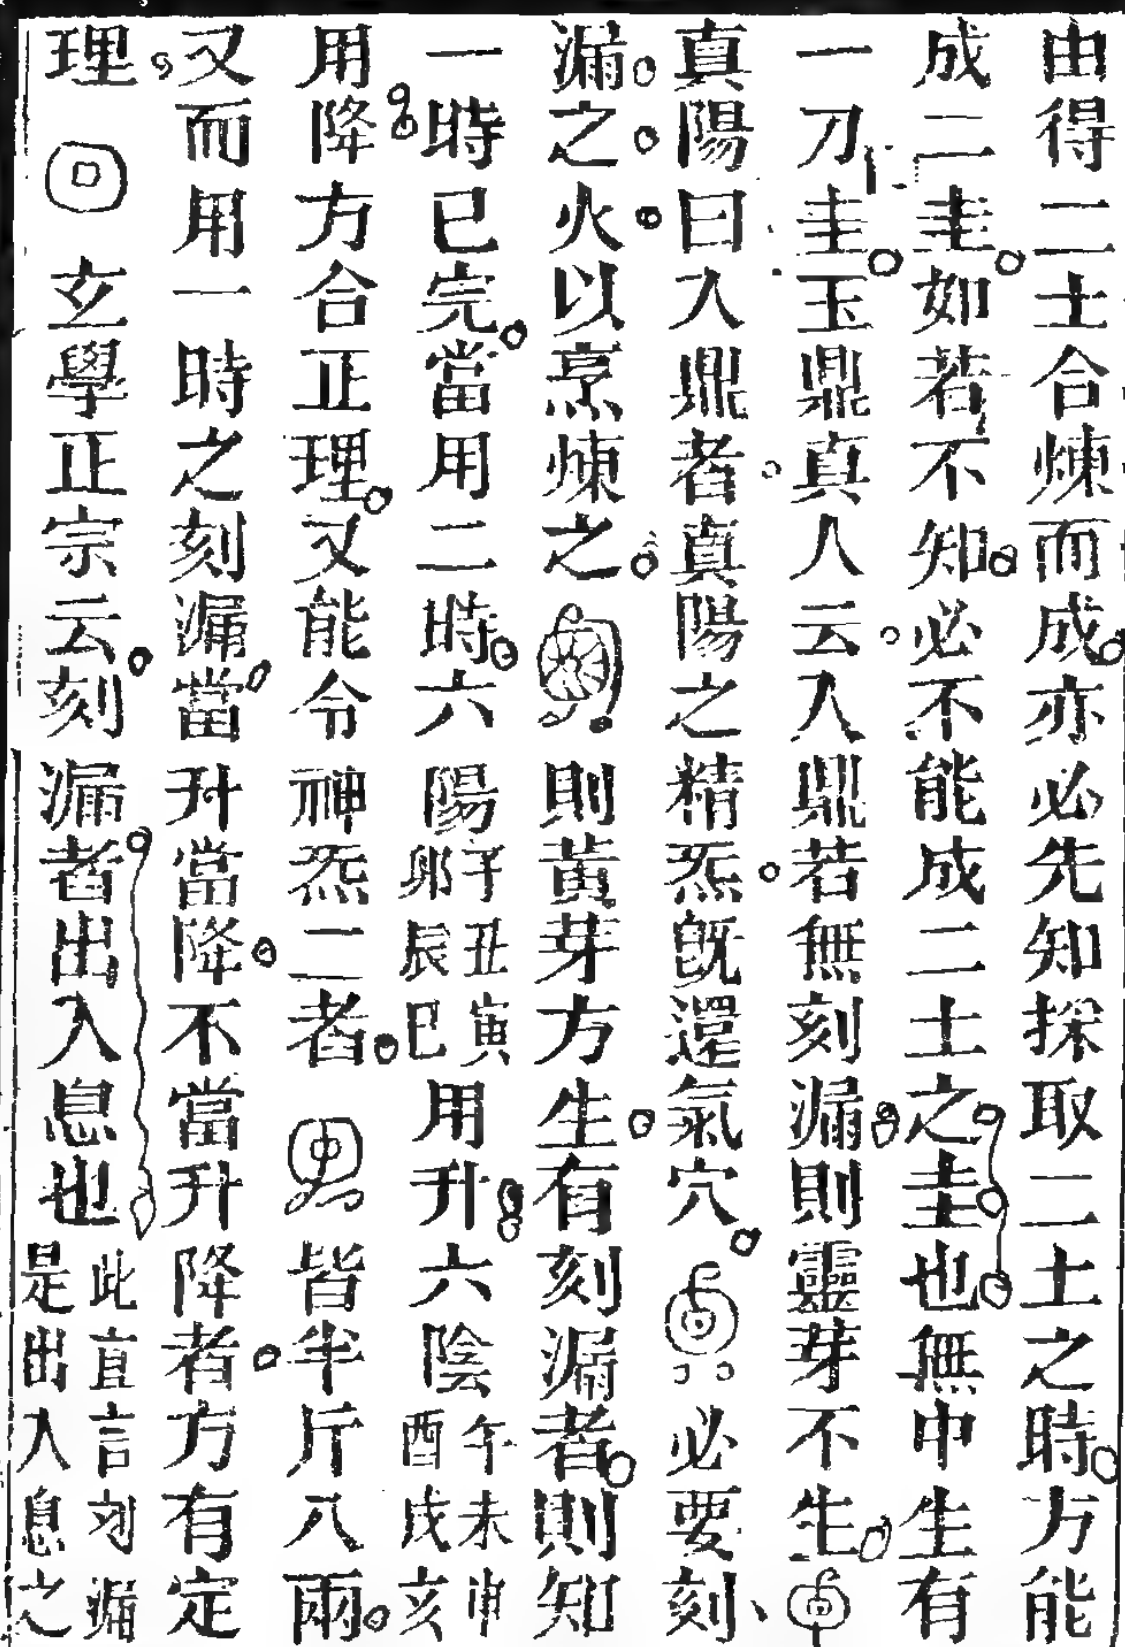 由得二土合煉而成亦必先知採取二土之時方能
成二圭如若不知必不能成二土之圭也無中生有
一刀圭玉鼎真人云入鼎若無刻漏則靈芽不生
真陽曰入鼎者真陽之精炁旣還氣穴必要刻
漏之火以烹煉之則黃芽方生有刻漏者則知
一時已完當用二時六陽子丑寅卯辰巳用升六陰午未申酉戌亥
用降方合正理又能令神炁二者皆半斤八兩
又而用一時之刻漏當升當降不當升降者方有定
理
玄學正宗云刻漏者出入息也此直言刻漏是出入息之